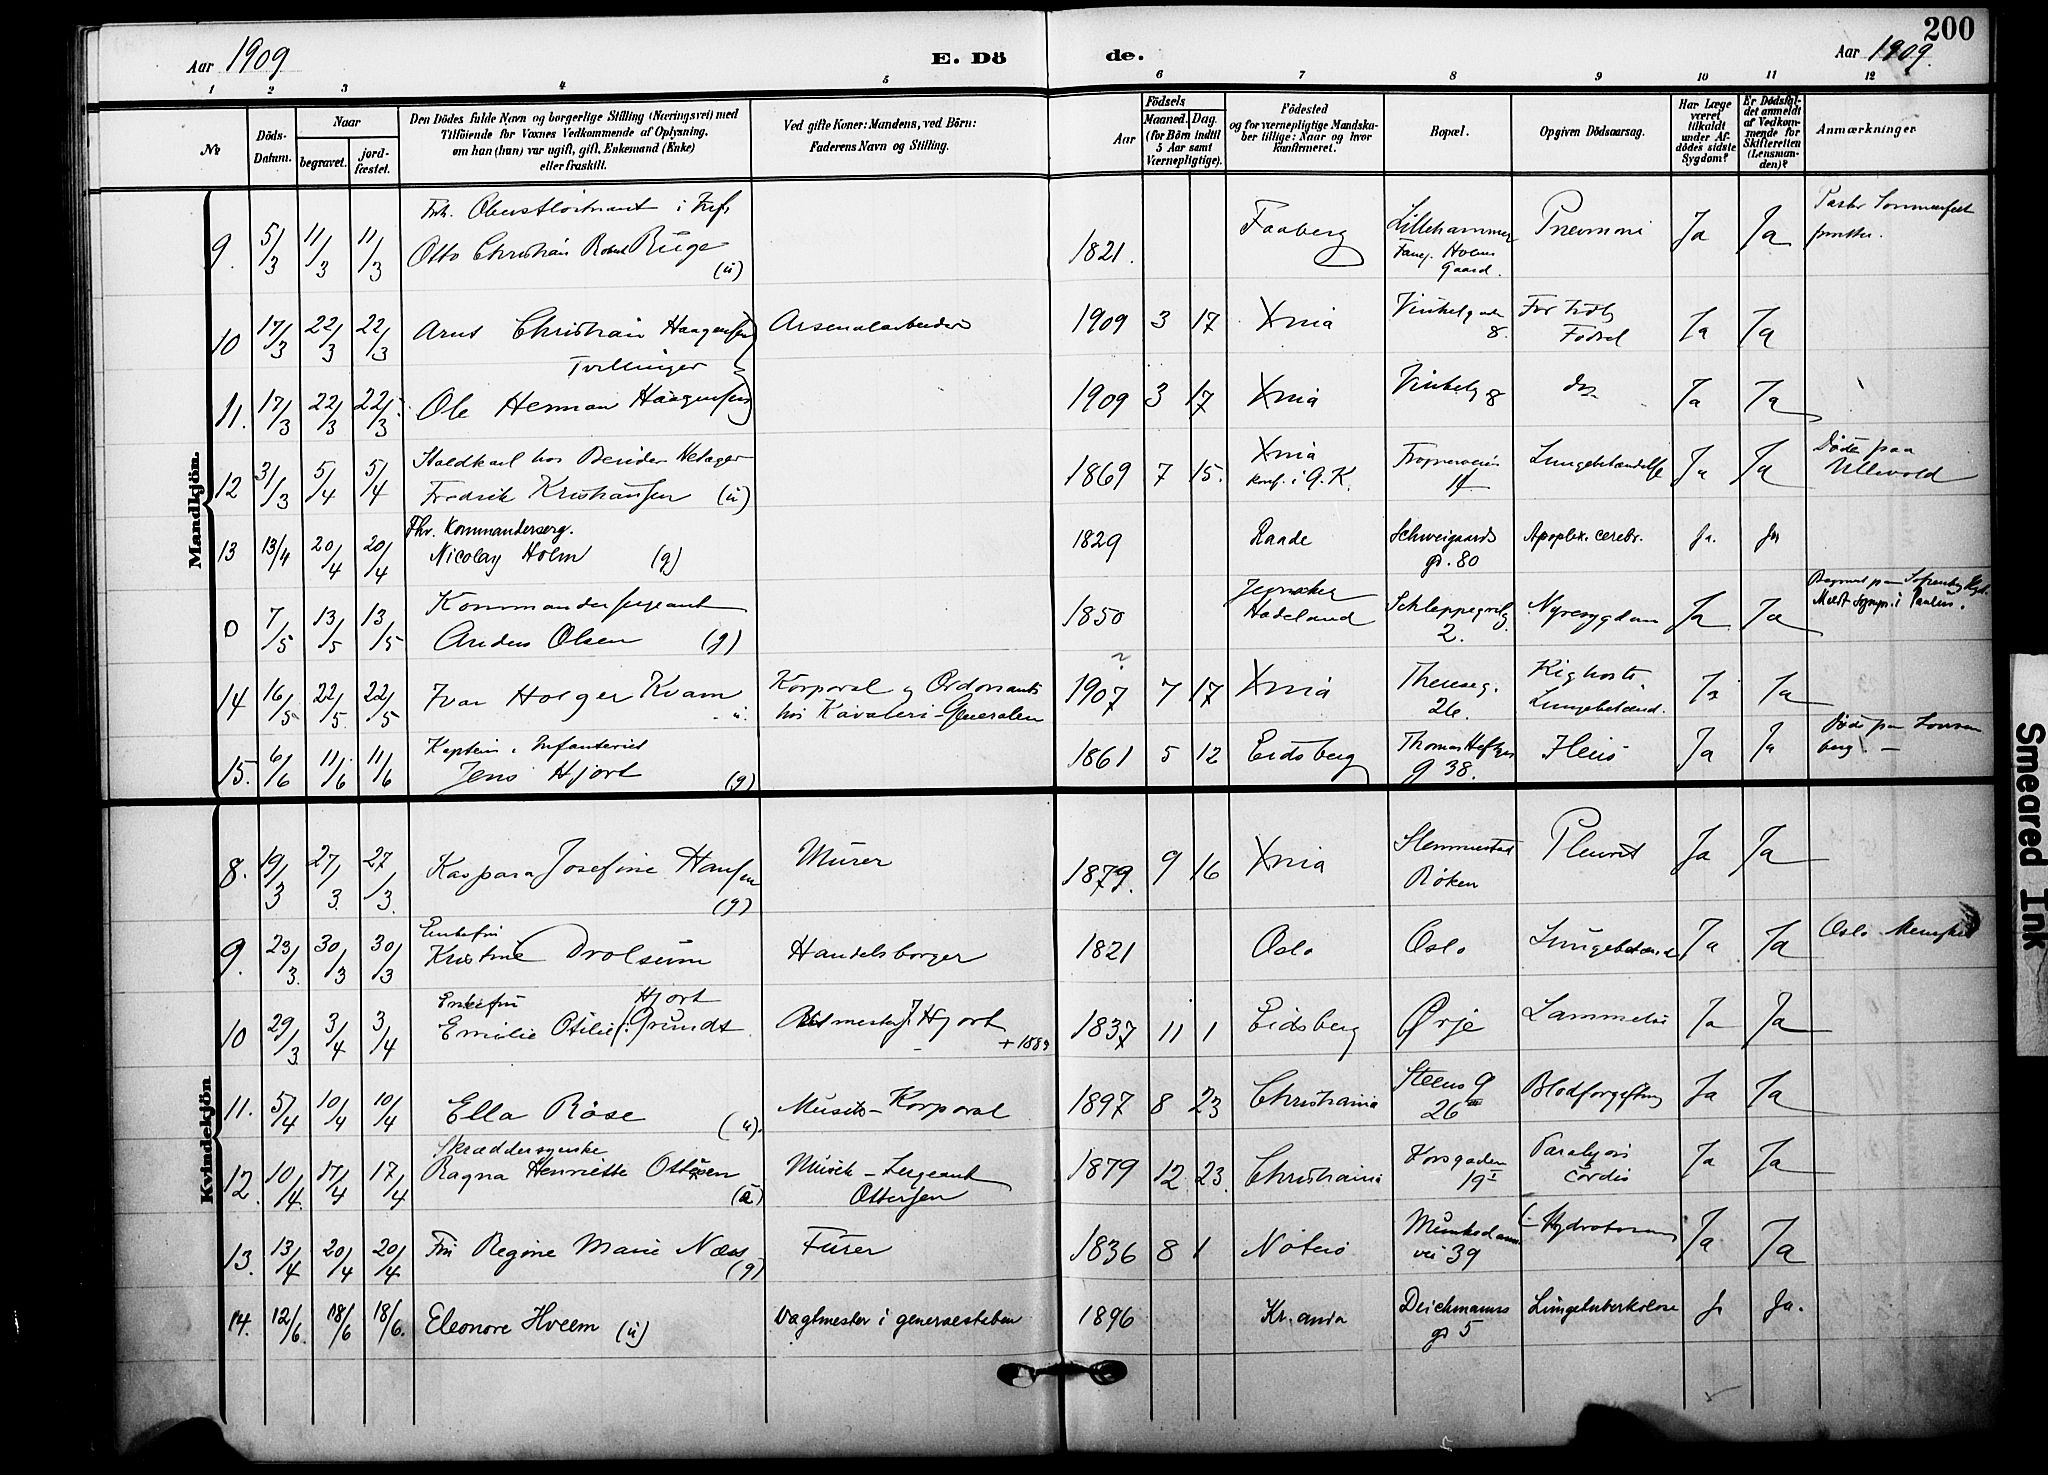 200
Aar 1909 E. Dö de. Aar 1909.
1 2 3 4 5 6 7 8 9 10 11 12
No
Döds-Datum.
Naar
begravet.
jord-fæstet.
Den Dödes fulde Navn og borgerlige Stilling (Næringsvei) med
Tilföiende for Voxnes Vedkommende af Oplysning,
om han (hun) var ugift, gift, Enkemand (Enke)
eller fraskilt.
Ved gifte Koner: Mandens, ved Börn:
Faderens Navn og Stilling.
Födsels
Aar
Maaned. Dag.
(for Börn indtil
5 Aar samt
Værnepligtige).
Födested
og for værnepligtige Mandska-
ber tillige: Naar og hvor
konfirmeret.
Bopæl.
Opgiven Dödsaarsag.
Har Læge
været
tilkaldt
under Af-
dödes sidste
Sygdom?
Er Dödsfal-
det anmeldt
af Vedkom-
mende for
Skifteretten
(Lensman-
den)?
Anmærkninger
Mandkjön.
Frh. Oberstløitnant i Inf.
9. 5/3 11/3 11/3 Otto Christian Robert Ruge (u) 1821. Faaberg Lillehammer Pneumoni Ja Ja
Gaard.
10 17/3 22/3 22/3 Arne Christian Haagensen Arsenalarbeider 1909 3 17 Xnia 8. For tidlig Fødsel Ja Ja
Tvillinger
11. 17/3 22/3 22/3 Ole Herman Haagensen 1909 3 17 Xnia 8 do Ja Ja
12 31/3 5/4 5/4 Fredrik Kristiansen (u) 1869 7 15. Xnia konf. i G. K. Ja Ja Døde paa Ullevold
Fhv. Kommanderserg.
13 13/4 20/4 20/4 Nicolay Holm (g) 1829 Raade Schweigaards gd. 80 Apoplex. cerebr. Ja. Ja
Kommandersergeant
0 7/5 13/5 13/5 Anders Olsen (g) 1850 Jevnaker Hadeland Schleppegrelg. 2. Nyresygdom Ja Ja
14 16/5 22/5 22/5 Ivar Holger Kvam u. Korporal og Ordonants hos Kavaleri-Generalen 1907 7 17 Xnia Thereseg. 26. Kighoste Lungebetænd. Ja Ja
Kaptein i Infanteriet
15. 6/6 11/6 11/6 Jens Hjort (g) 1861 5 12 Eidsberg Thomas Heftyes g 38. Ileus Ja Ja
Kvindekjön.
8. 19/3 27/3 27/3 Kaspara Josefine Hansen (g) Murer 1879. 9 16 Xnia Slemmestad Røken Pleurit Ja Ja
Enkefru
9. 23/3 30/3 30/3 Kristine Drolsum Handelsborger 1821 Oslo Oslo Lungebetænd Ja Ja Oslo Menighed
Enkefru Hjort
10 29/3 3/4 3/4 Emilie Otilie f. Grundt J. Hjort + 1889 1837 11 1 Eidsberg Ørje Lammelse Ja Ja
11. 5/4 10/4 10/4 Ella Röse (u). Musik-Korporal 1897 8 23 Christiania Steens g 26 III Blodforgiftning Ja Ja
Skræddersyerske
12. 10/4 17/4 17/4 Ragna Henriette Ottesen (u) Musik-Sergeant Ottersen 1879 12 23. Christiania Korsgaden 19 I Paralysis cordis Ja Ja
13. 13/4 20/4 20/4 Fru Regine Marie Næss (g) Furer 1836 8 1 Nøterø Munkedams vei 39 Ja Ja
14. 12/6 18/6 18/6. Eleonore Hveem (u) Vagtmester i generalstaben 1896 Kr.ania Deichmanns gd 5 Lungetuberkolose Ja Ja.
Smeared Ink